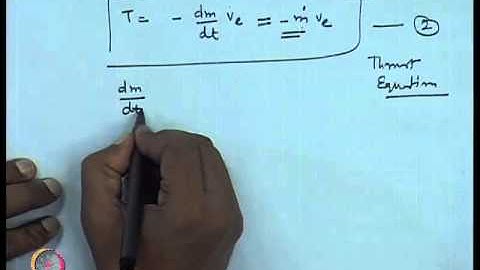 T = - dm/dt ve = - ṁ ve — 2
Thrust
Equation
dm/dt